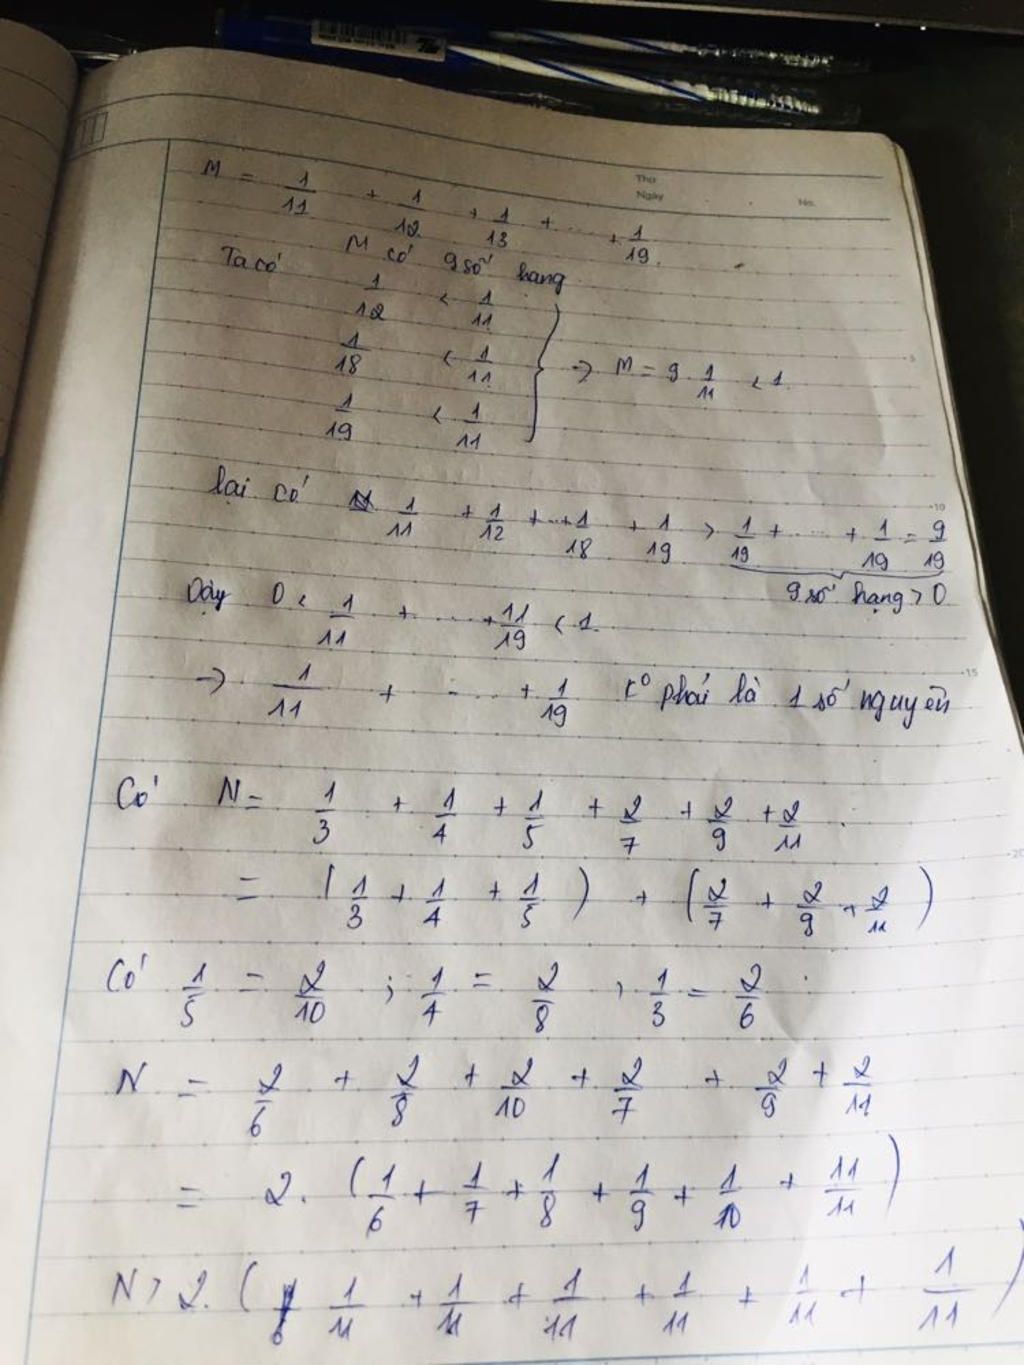 Thứ
Ngày No.
M = 1/11 + 1/12 + 1/13 + ... + 1/19.
Ta có M có 9 số hang
1/12 < 1/11
1/18 < 1/11 } → M = 9 1/11 < 1.
1/19 < 1/11
lại có 1/11 + 1/12 + ... + 1/18 + 1/19 > 1/19 + ... + 1/19 = 9/19
9 số hạng > 0
Dậy 0 < 1/11 + ... + 11/19 < 1.
→ 1/11 + ... + 1/19 k0 phải là 1 số nguyên
Có N = 1/3 + 1/4 + 1/5 + 2/7 + 2/9 + 2/11
= (1/3 + 1/4 + 1/5) + (2/7 + 2/9 + 2/11)
Có 1/5 = 2/10 ; 1/4 = 2/8 , 1/3 = 2/6
N = 2/6 + 2/8 + 2/10 + 2/7 + 2/9 + 2/11
= 2. (1/6 + 1/7 + 1/8 + 1/9 + 1/10 + 11/11)
N > 2. (1/11 + 1/11 + 1/11 + 1/11 + 1/11 + 1/11)
5
10
15
20